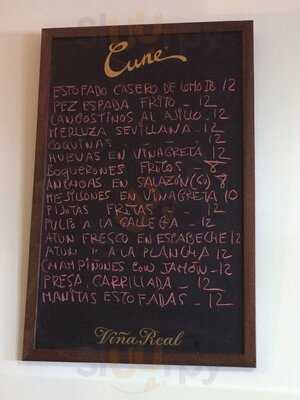 Cune
ESTOFADO CASERO DE LOMO 12
PEZ ESPADA FRITO - 12
LANGOSTINOS AL AJILLO - 12
MERLUZA SEVILLANA - 12
COQUINAS - - - 12
HUEVAS EN VINAGRETA 12
BOQUERONES FRITOS - 8
ANCHOAS EN SALAZÓN 8
MEJILLONES EN VINAGRETA 10
PIJOTAS FRITAS - - 12
PULPO A LA GALLEGA - 12
ATUN FRESCO EN ESCABECHE 12
ATUN A LA PLANCHA - 12
CHAMPIÑONES CON JAMÓN - 12
PRESA, CARRILLADA - 12
MANITAS ESTOFADAS - 12
Viña Real